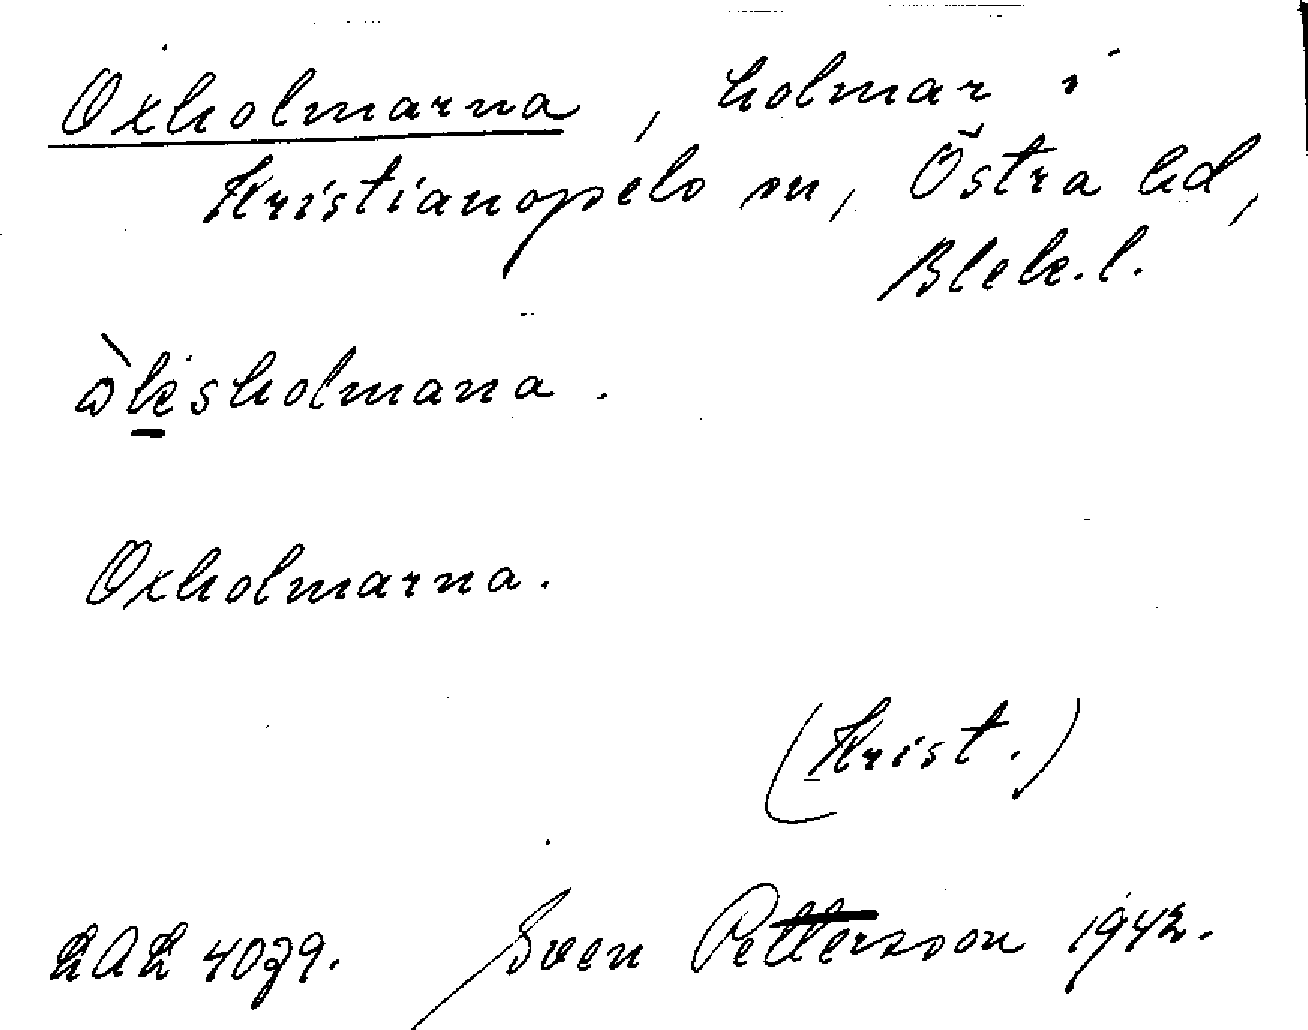 Oxholmarna, holmar i
Kristianopels sn, Östra hd,
Blek.l.
Oxholmarna.
(Krist.)
LAL 4079. Sven Pettersson 1942.